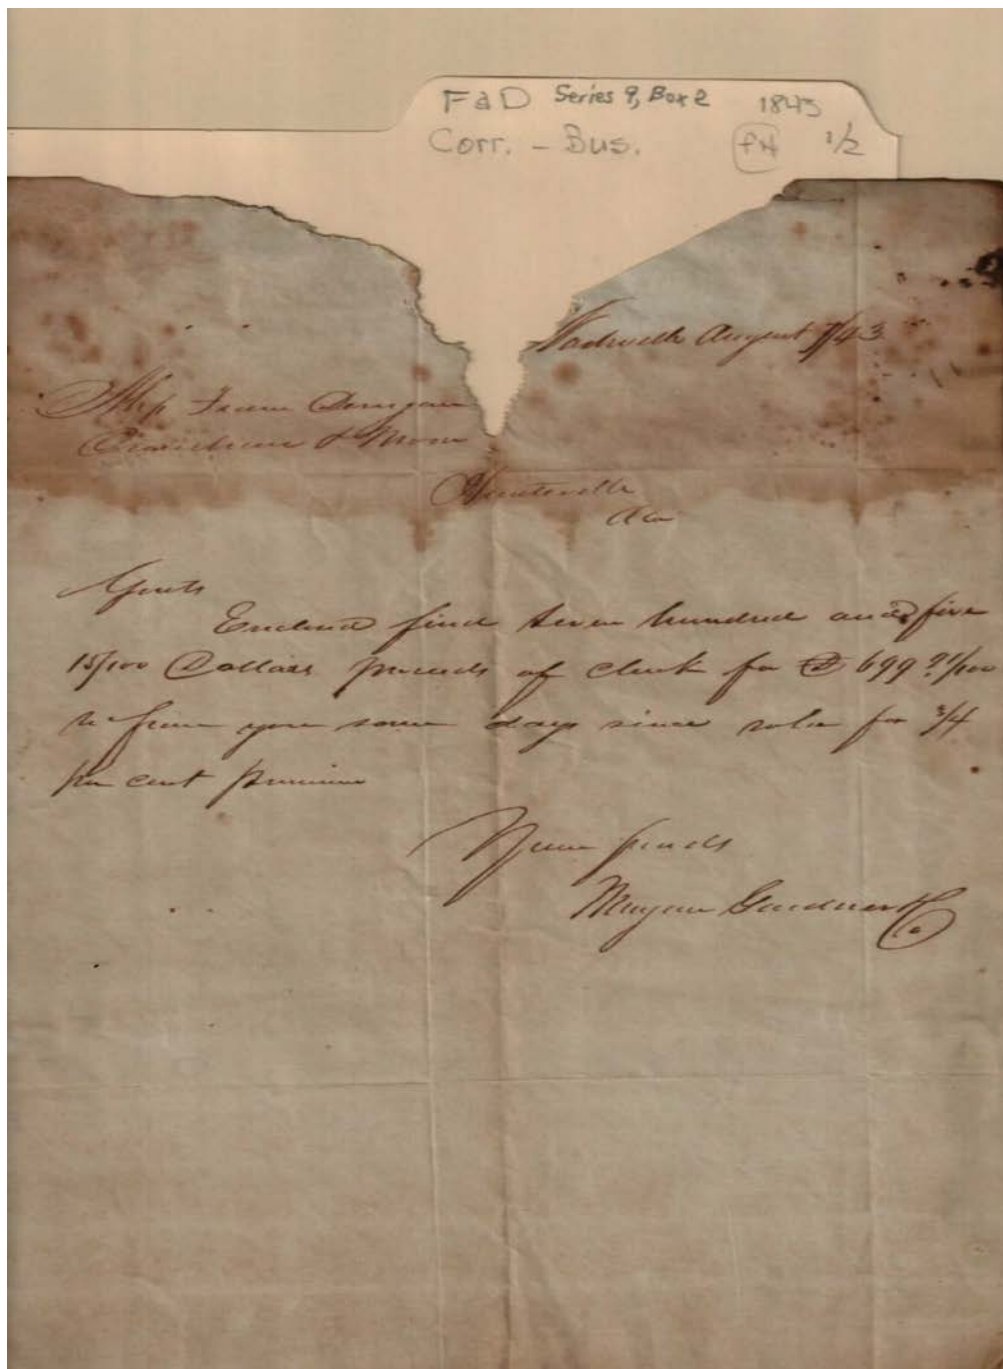 FaD Series 9, Box 2 1843
Corr. - Bus. PH 1/2
Nashville August 7/43
Donegan
& Moore
Huntsville
Ala
Gents
Enclosed find Seven hundred and five
15/100 Dollars proceeds of check for $ 699
from you some days since sold for 3/4
per cent premium
Your friends
Morgan Gardner & Co